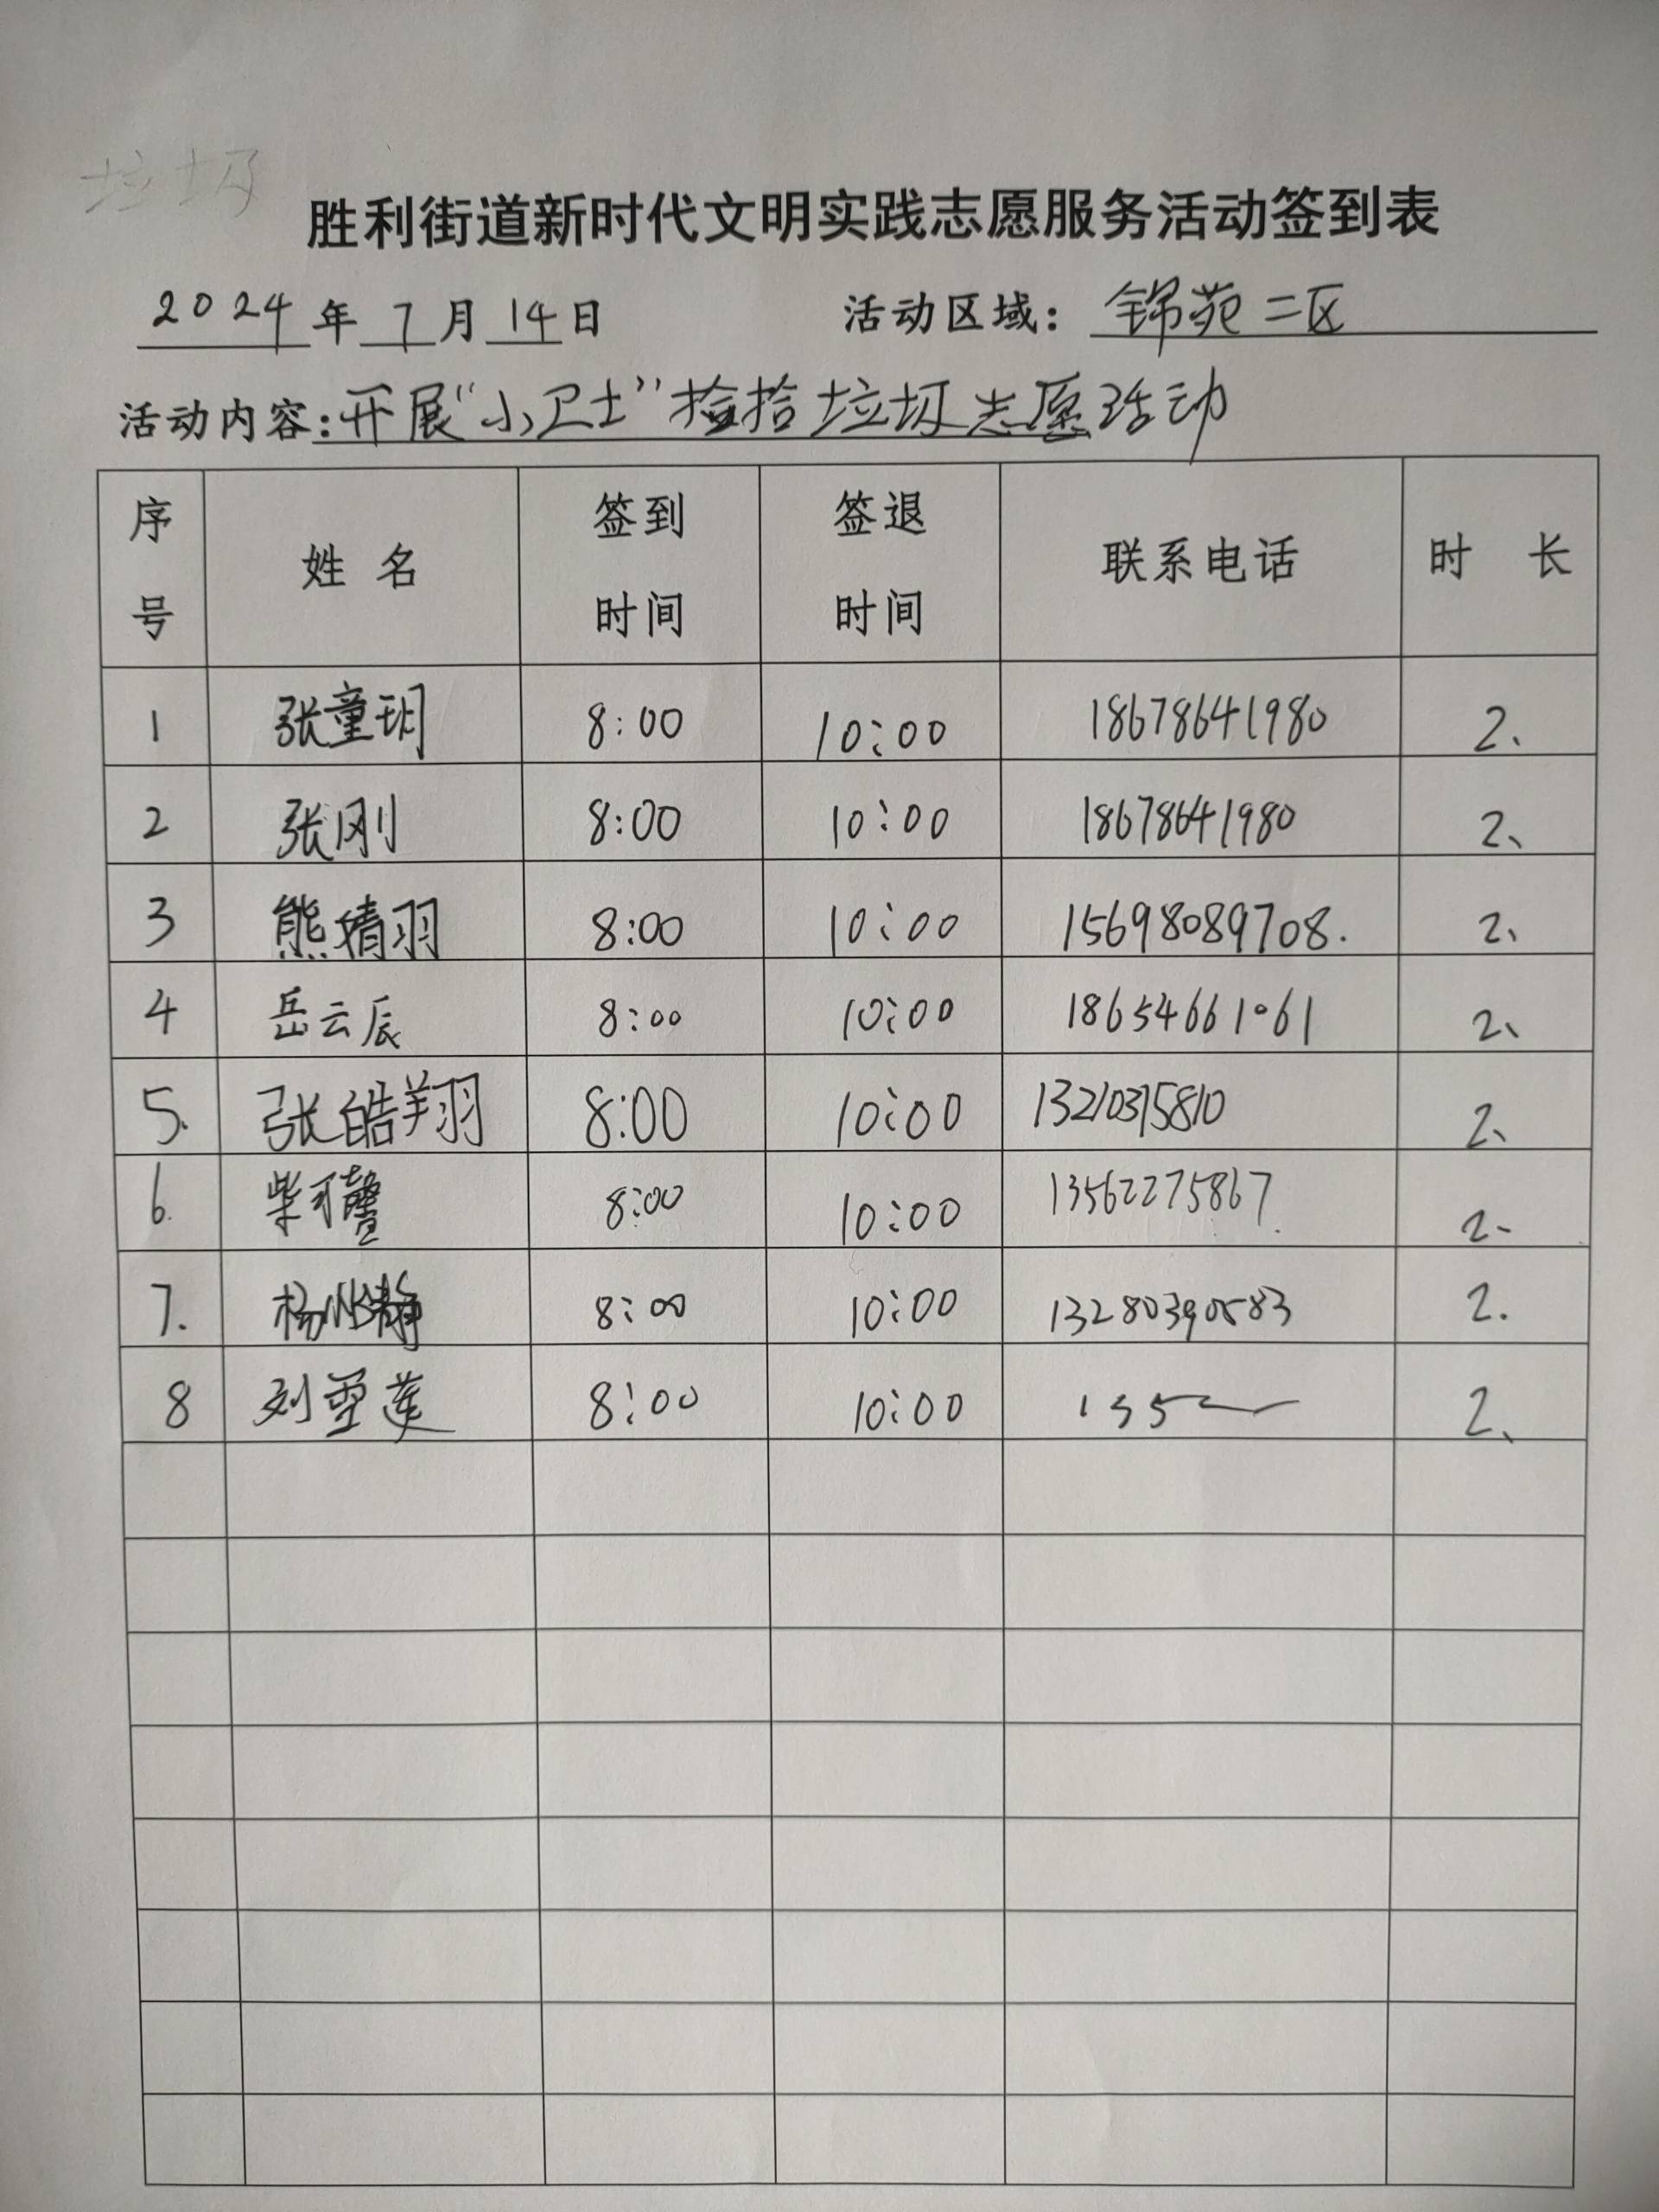 垃圾
胜利街道新时代文明实践志愿服务活动签到表
2024年7月14日 活动区域：锦苑二区
活动内容：开展“小卫士”捡拾垃圾志愿活动
序号 姓名 签到时间 签退时间 联系电话 时长
1 张童玥 8:00 10:00 18678641980 2、
2 张刚 8:00 10:00 18678641980 2、
3 熊婧羽 8:00 10:00 15698089708. 2、
4 岳云辰 8:00 10:00 18654661061 2、
5. 张皓翔 8:00 10:00 13210375810 2、
6. 柴可馨 8:00 10:00 13562275867. 2、
7. 杨 静 8:00 10:00 13280390583 2.
8 刘雪莲 8:00 10:00 135 2、